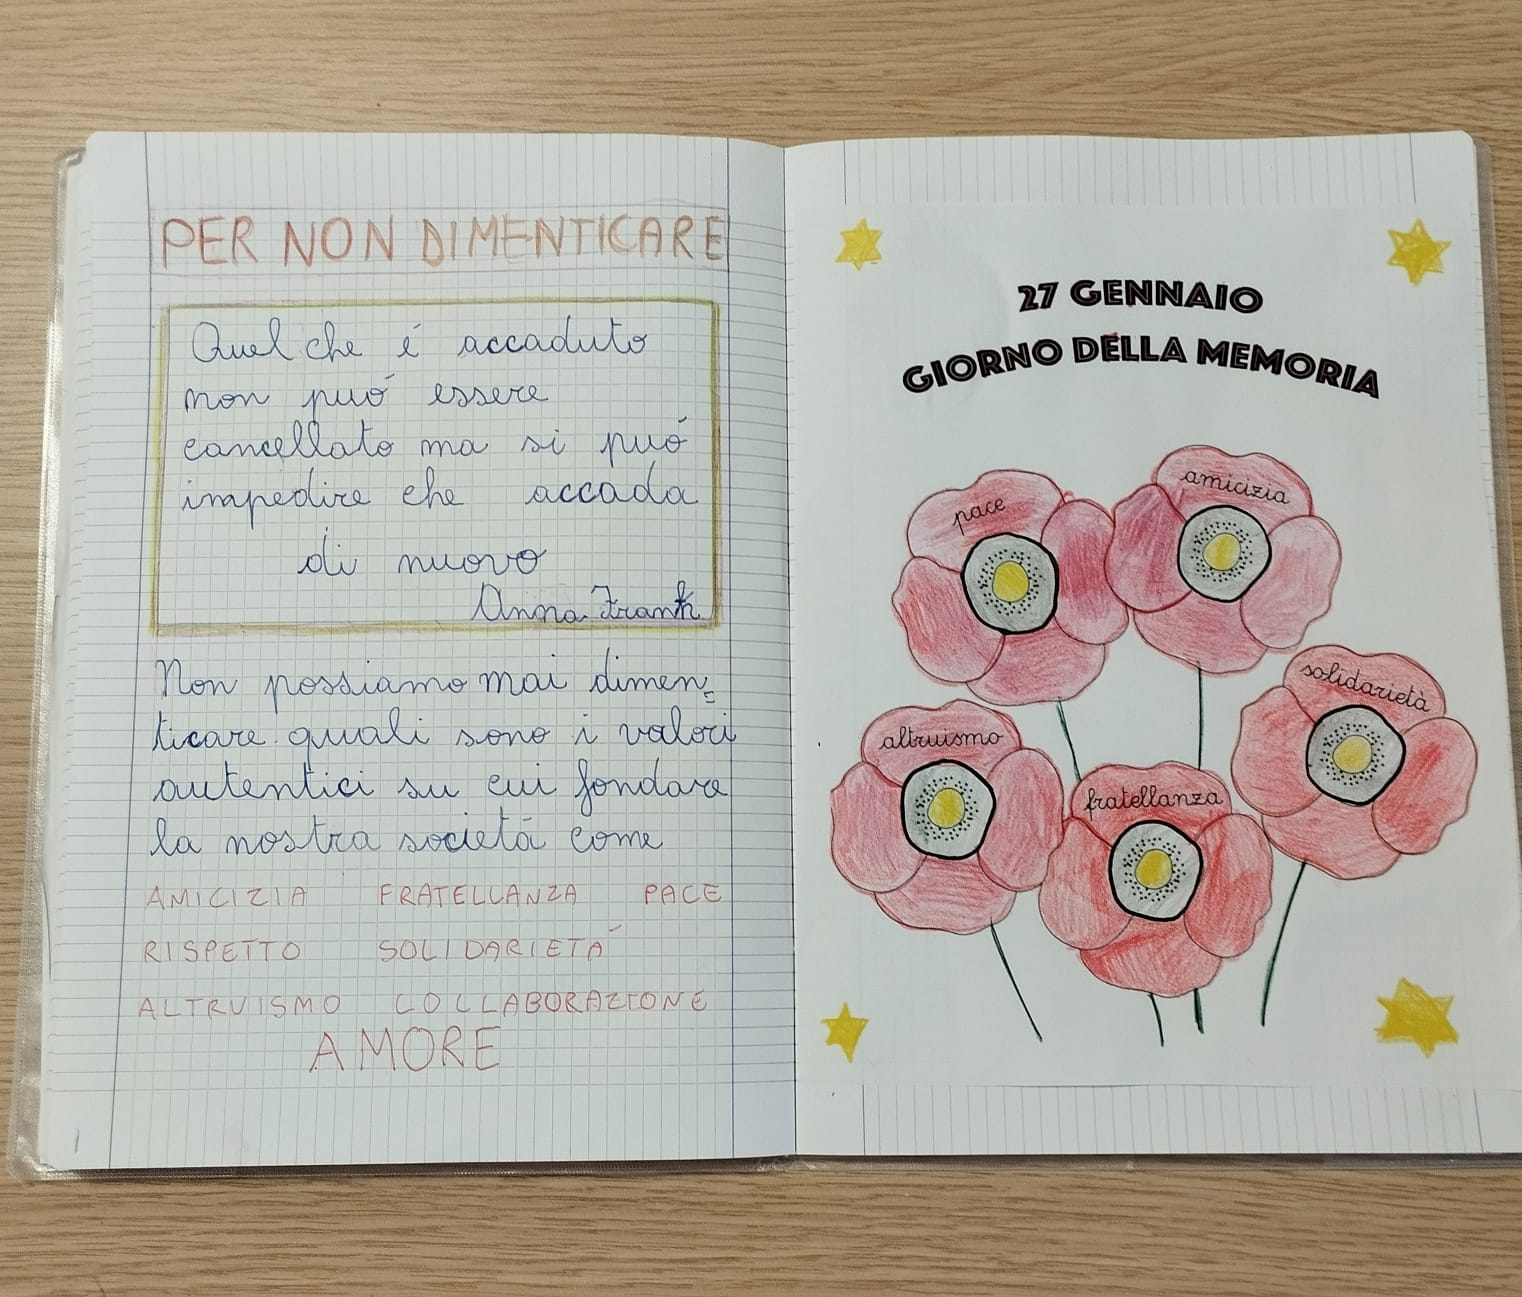 PER NON DIMENTICARE
Quel che é accaduto
non puó essere
cancellato ma si puó
impedire che accada
di nuovo
Anna Frank
Non possiamo mai dimen=
ticare quali sono i valori
autentici su cui fondare
la nostra societá come
AMICIZIA FRATELLANZA PACE
RISPETTO SOLIDARIETÁ
ALTRUISMO COLLABORAZIONE
AMORE
27 GENNAIO
GIORNO DELLA MEMORIA
pace
amicizia
solidarietà
altruismo
fratellanza